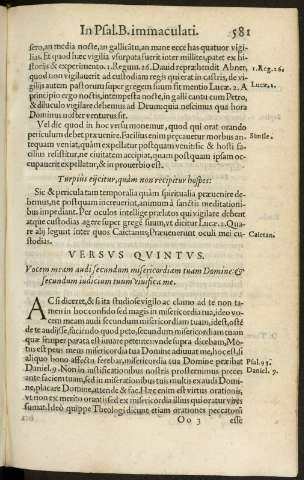 In Psal. B. immaculati. 581
sero, an media nocte, an gallicātu, an mane ecce has quatuor vigi-
lias. Et quod hæc vigilia vsurpata fuerit inter milites, patet ex hi-
storijs & experimento. 1. Regum. 26. Dauid repræhendit Abner, 1. Reg. 26.
quod non vigilauerit ad custodiam regis qui erat in castris, de vi-
gilia autem pastorum super gregem suum fit mentio Lucæ. 2. A Lucæ. 2.
principio ergo noctis, intempesta nocte, in galli cantu cum Petro,
& diluculo vigilare debemus ad Deum quia nescimus qua hora
Dominus noster venturus sit.
Vel dic quod in hoc versu monemur, quod qui orat orandi
periculum debet præuenire. Facilius enim præcauetur morbus an- Simile.
tequam veniat, quàm expellatur postquam venit: sic & hosti fa-
cilius resistitur, ne ciuitatem accipiat, quam postquam ipsam oc-
cupauerit expellatur, & in prouerbio est.
Turpiùs eijcitur, quàm non recipitur hospes:
Sic & pericula tam temporalia quàm spiritualia præuenire de-
bemus, ne postquam increuerint, animum à sanctis meditationi-
bus impediant. Per oculos intellige prælatos qui vigilare debent
atque custodias agere super gregē suum, vt dicitur Lucæ. 2. Qua-
re alij legunt inter quos Caietanus, Præuenerunt oculi mei cu- Caietan.
stodias.
VERSVS QVINTVS.
Vocem meam audi secundum misericordiam tuam Domine: &
secundum iudicium tuum viuifica me.
AC si diceret, & si ita studiosè vigilo ac clamo ad te non ta-
men in hoc confido sed magis in misericordia tua, ideo vo-
cem meam audi secundum misericordiam tuam, id est, ostē
de te audisse, faciendo quod peto, secundum misericordiam tuam
quæ semper parata est iuuare petentes vnde supra dicebam, Mo-
tus est pes meus misericordia tua Domine adiuuat me, hoc est, si
aliquo bono affectu ferebar, misericordia tua Domine præibat Psal. 93.
Daniel. 9. Non in iustificationibus nostris prosternimus preces Daniel. 9.
ante faciem tuam, sed in miserationibus tuis multis exaudi Domi-
ne, placare Domine, attende & fac. Hæc enim est virtus orationis,
vt non ex merito orantis sed ex misericordia illius qui oratur vires
sumat. Ideò quippe Theologi dicunt etiam orationes peccatorū
Oo 3 esse